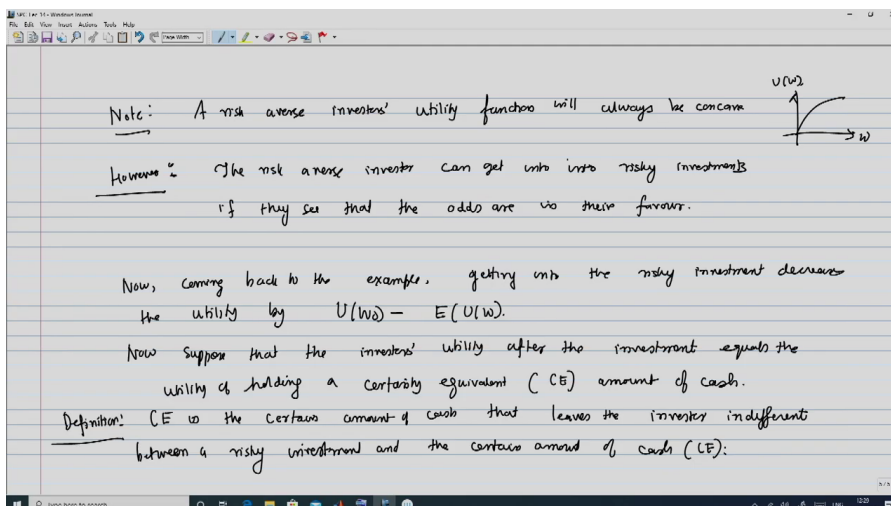 NPC Lec 10 - Windows Journal
File Edit View Insert Actions Tools Help
Page Width
U(W)
Note: A risk averse investors' utility function will always be concave
W
However: The risk averse investor can get into into risky investments
if they see that the odds are in their favour.
Now, coming back to the example, getting into the risky investment decreases
the utility by U(W0) - E(U(W).
Now suppose that the investors' utility after the investment equals the
utility of holding a certainty equivalent (CE) amount of cash.
Definition: CE is the certain amount of cash that leaves the investor indifferent
between a risky investment and the certain amount of cash (CE):
5/5
Type here to search
ENG
12:29